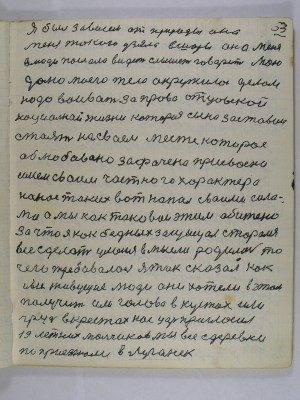 53
Я был зависем от природы она
меня такого узнала вскоре она меня
люди послала видит слышит говорит мою
дано моего тело окружило делом
надо воиват за право отцовской
социальнай жизни которая сино заставила
стоят на своем месте которое
облюбовано захвачена присвоено
имем своем частного характера
на нас таких вот напал своими сила-
ми а мы как таковые этим обитено
за что я как бедных защищал стараля
все сделат у меня в мысли родилос то
чего требовалос я так сказал как
ивсе живущие люди они хотели в этом
получит им голова в кустах или
груд в крестах нас уцх пригласил
19 летних малчиков мы все с деревни
по приезжали в Луганск